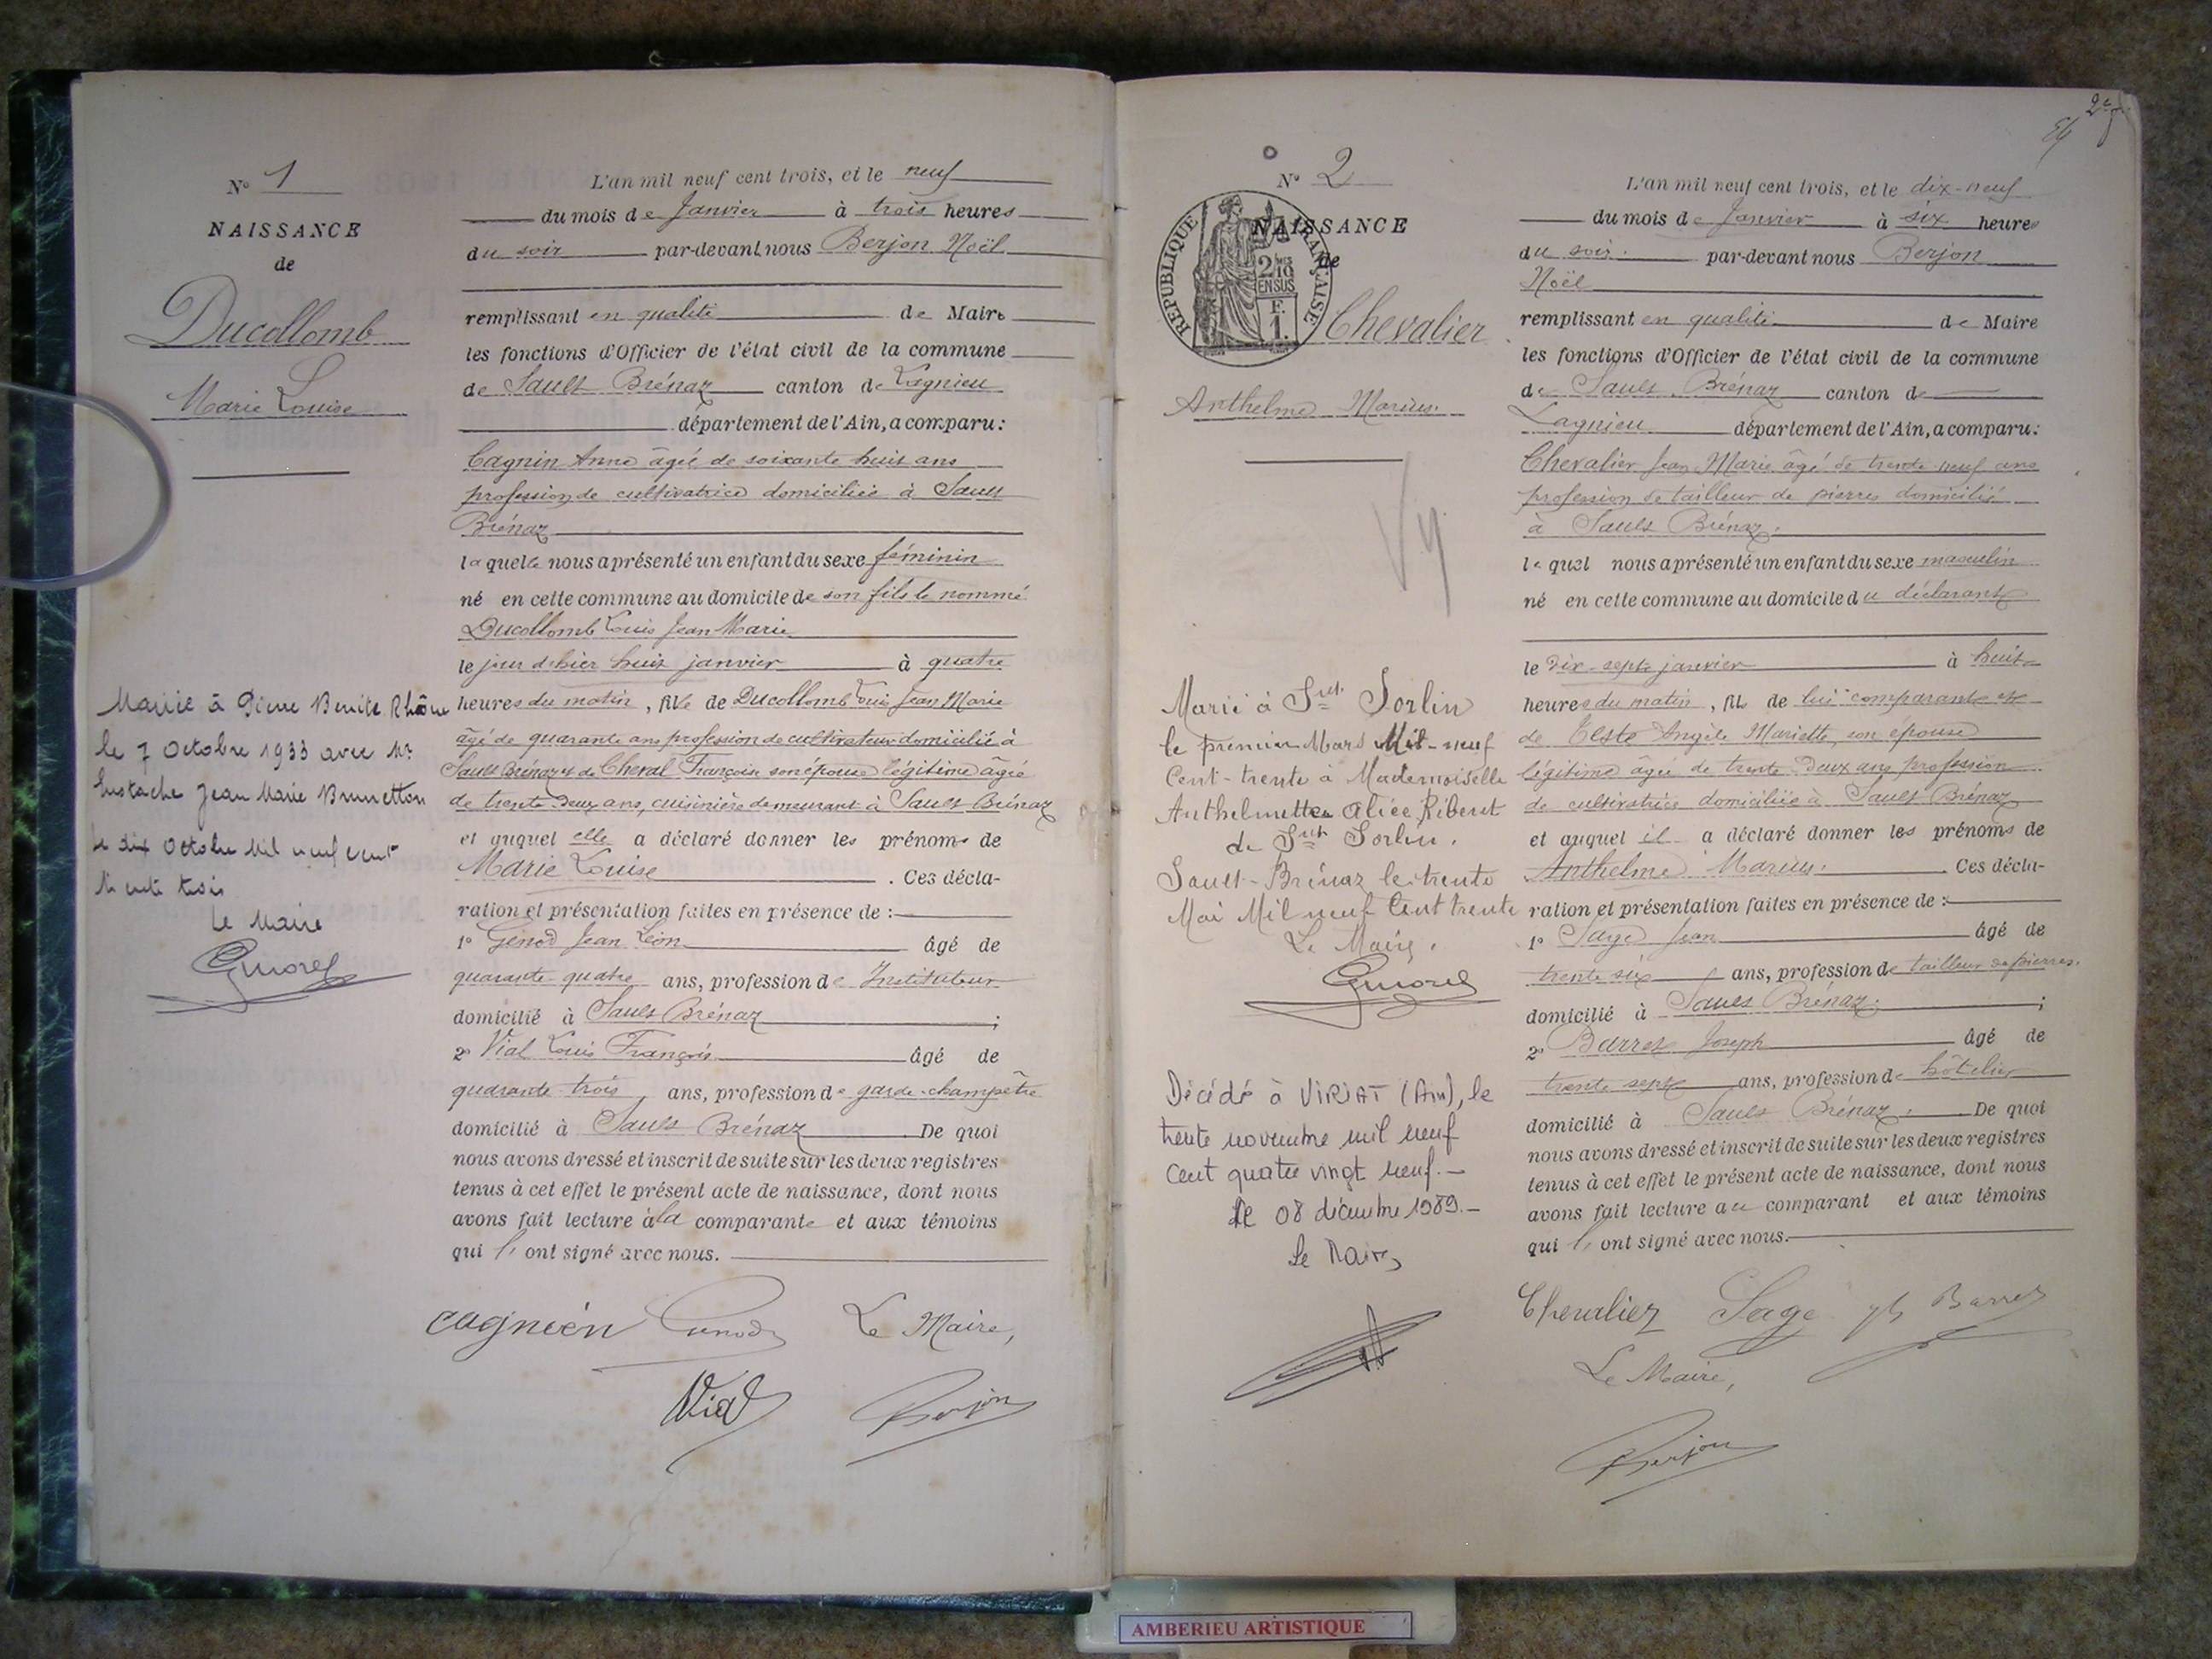 N° 1
NAISSANCE
de
Ducollomb
Marie Louise
Mariée à Pierre Bénite Rhône
le 7 Octobre 1933 avec Mr
Eustache Jean Marie Brunetton
le dix Octobre Mil neuf cent
trente trois
Le Maire
L'an mil neuf cent trois, et le neuf
du mois de Janvier à trois heures
du soir par-devant nous Berjon Noël
remplissant en qualité de Maire
les fonctions d'Officier de l'état civil de la commune
de Sault Brénaz canton de Lagnieu
département de l'Ain, a comparu:
Cagnin Anne âgée de soixante huit ans
profession de cultivatrice domiciliée à Sault
Brénaz
laquelle nous a présenté un enfant du sexe féminin
né en cette commune au domicile de son fils le nommé
Ducollomb Louis Jean Marie
le jour d'hier huit janvier à quatre
heures du matin, fille de Ducollomb Louis Jean Marie
âgé de quarante ans profession de cultivateur domicilié à
Sault Brénaz et de Cheval Françoise son épouse légitime âgée
de trente deux ans, cuisinière demeurant à Sault Brénaz
et auquel elle a déclaré donner les prénoms de
Marie Louise . Ces décla-
ration et présentation faites en présence de :
1° Genod Jean Léon âgé de
quarante quatre ans, profession de Instituteur
domicilié à Sault Brénaz ;
2° Vial Louis François âgé de
quarante trois ans, profession de garde-champêtre
domicilié à Sault Brénaz De quoi
nous avons dressé et inscrit de suite sur les deux registres
tenus à cet effet le présent acte de naissance, dont nous
avons fait lecture à la comparante et aux témoins
qui l' ont signé avec nous.
cagnien Genod Le Maire,
Vial Berjon
N° 2
NAISSANCE
de
RÉPUBLIQUE FRANÇAISE
2/10
EN SUS
F.
1.
Chevalier
Anthelme Marius.
Marié à St Sorlin
le premier Mars Mil-neuf
Cent-trente à Mademoiselle
Anthelmette Alice Riberet
de St Sorlin.
Sault-Brénaz le trente
Mai Mil neuf Cent trente
Le Maire.
Décédé à VIRIAT (Ain), le
trente novembre mil neuf
cent quatre vingt neuf.-
Le 08 décembre 1989.-
Le Maire,
L'an mil neuf cent trois, et le dix-neuf
du mois de Janvier à six heures
du soir par-devant nous Berjon
Noël
remplissant en qualité de Maire
les fonctions d'Officier de l'état civil de la commune
de Sault Brénaz canton de
Lagnieu département de l'Ain, a comparu:
Chevalier Jean Marie âgé de trente neuf ans
profession de tailleur de pierres domicilié
à Sault Brénaz.
lequel nous a présenté un enfant du sexe masculin
né en cette commune au domicile du déclarant
le dix-sept janvier à huit
heures du matin, fils de lui comparant et
de Teste Angèle Mariette, son épouse
légitime âgée de trente deux ans profession
de cultivatrice domiciliée à Sault Brénaz
et auquel il a déclaré donner les prénoms de
Anthelme Marius. Ces décla-
ration et présentation faites en présence de :
1° Sage Jean âgé de
trente six ans, profession de tailleur de pierres.
domicilié à Sault Brénaz. ;
2° Barret Joseph âgé de
trente sept ans, profession de hôtelier
domicilié à Sault Brénaz. De quoi
nous avons dressé et inscrit de suite sur les deux registres
tenus à cet effet le présent acte de naissance, dont nous
avons fait lecture au comparant et aux témoins
qui l' ont signé avec nous.
Chevalier Sage Barret
Le Maire,
Berjon
AMBERIEU ARTISTIQUE